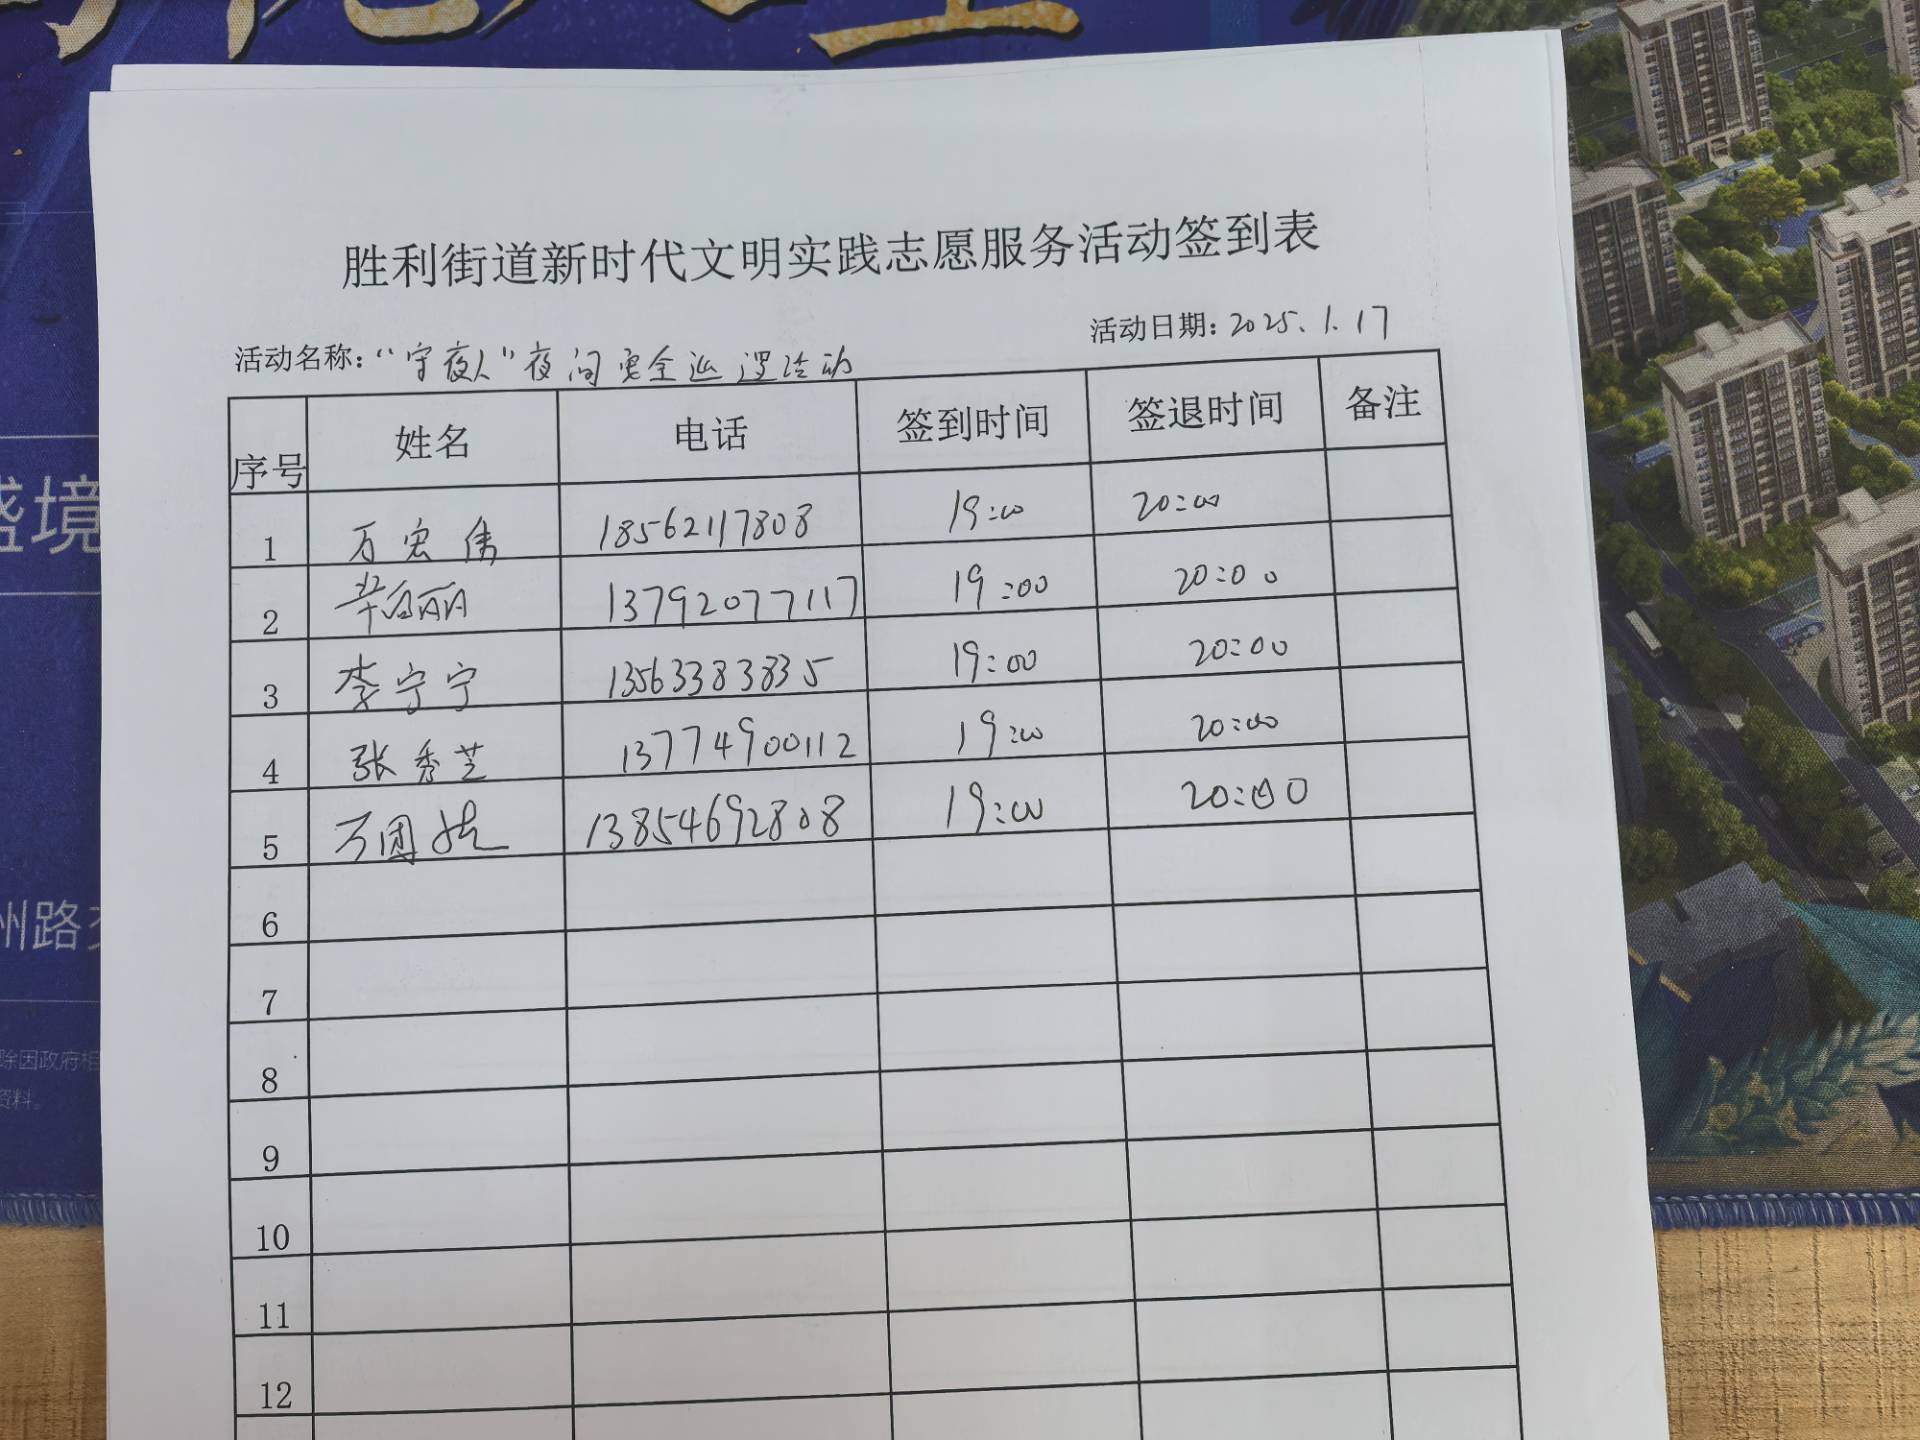 胜利街道新时代文明实践志愿服务活动签到表
活动日期: 2025.1.17
活动名称: “守夜人”夜间安全巡逻活动
序号 姓名 电话 签到时间 签退时间 备注
1 万宏伟 18562117808 19:00 20:00
2 丽 13792077117 19:00 20:00
3 李宁宁 13563383835 19:00 20:00
4 张秀芝 13774900112 19:00 20:00
5 万国 13854692808 19:00 20:00
6
7
8
9
10
11
12
盛境
州路
除因政府相
资料。